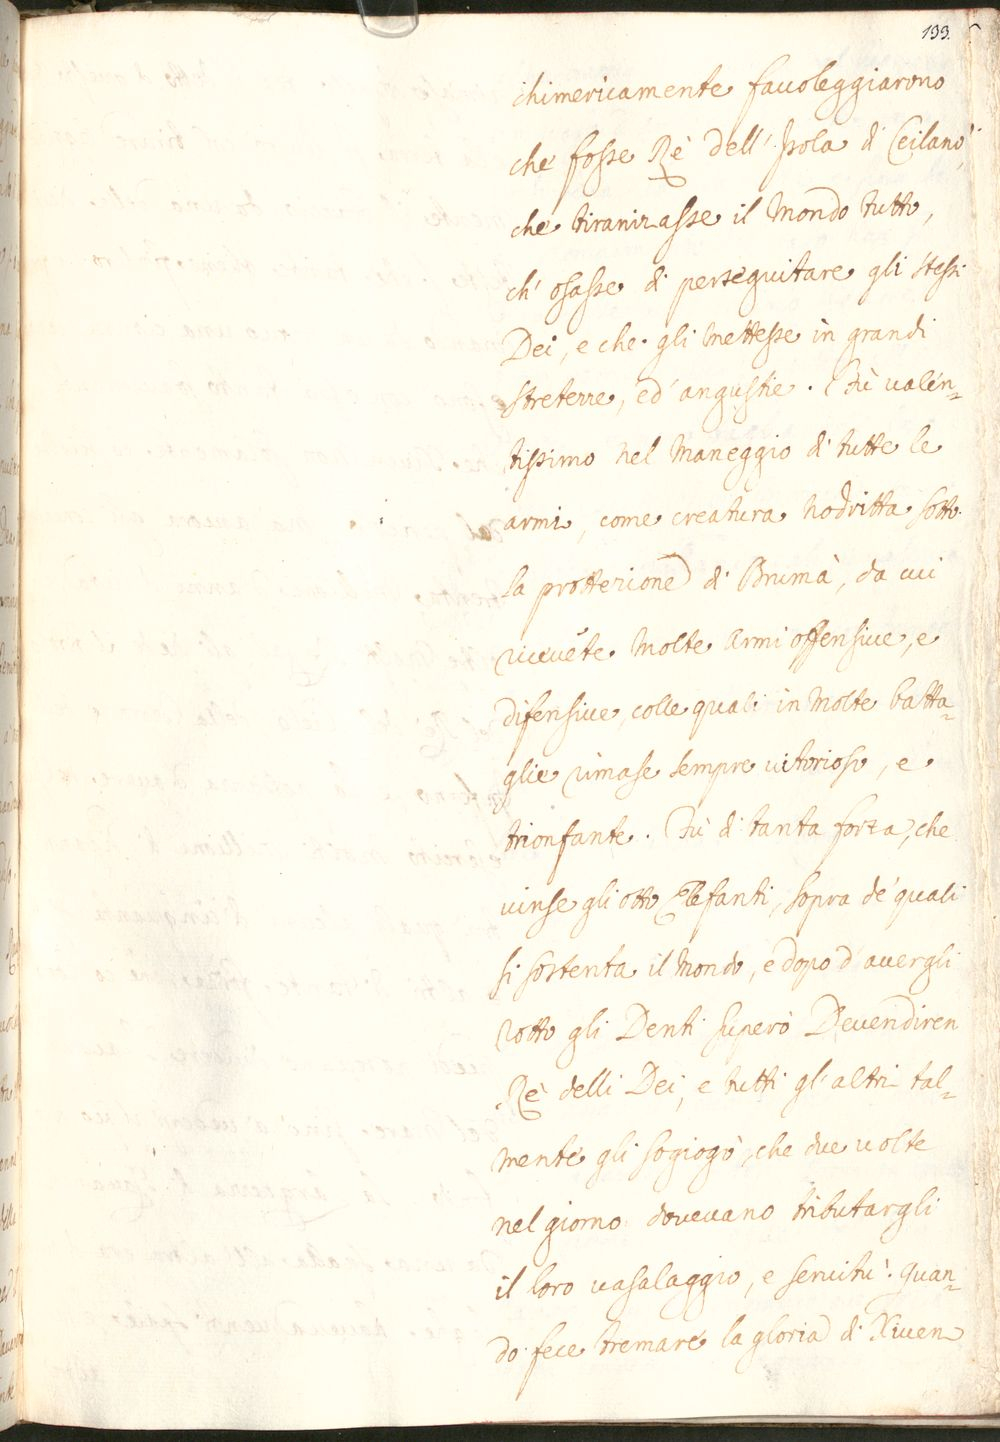 133.
chimericamente fauoleggiarono
che fosse Rè dell'Isola di Ceilano,
che tiranizasse il Mondo tutto,
ch'osasse di perseguitare gli stessi
Dei, e che gli mettesse in grandi
strettezze, ed angustie. Fù valen=
tissimo nel Maneggio di tutte le
armi, come creatura nodritta sotto
la prottezione di Brumà, da cui
riceuéte Molte Armi offensiue, e
difensiue, colle quali in Molte batta=
glie rimase sempre uitorioso, e
trionfante. Fù di tanta forza, che
uinse gli otto Elefanti, sopra de' quali
si sostenta il Mondo, e dopo d'auergli
rotto gli Denti superò Deuendiren
Rè delli Dei, e tutti gl'altri tal=
mente gli sogiogò, che due uolte
nel giorno doueuano tributargli
il loro uasalaggio, e seruitù. Quan=
do fece tremare la gloria di Xiuen